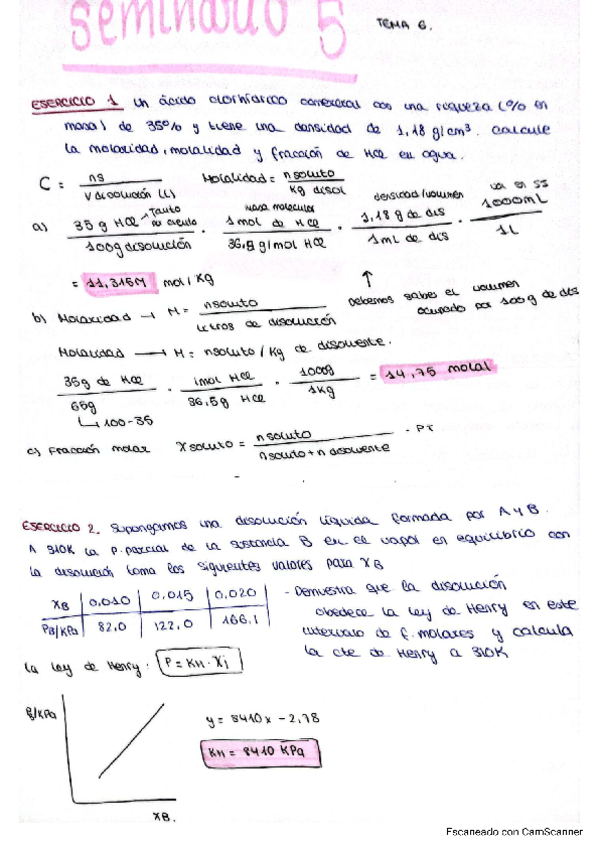 seminario 5
TEMA 6.
EJERCICIO 1 Un ácido clorhídrico comercial con una riqueza (% en
masa) de 35% y tiene una densidad de 1,18 g/cm³. Calcule
la molaridad, molalidad y fracción de HCl en agua.
C = ns / V disolución (L)
Molalidad = nsoluto / Kg disol
a) 35 g HCl / 100g disolución · 1 mol de HCl / 36,5 g/mol HCl · 1,18 g de dis / 1 mL de dis · 1000mL / 1L
Tanto
masa molecular
densidad/volumen
= 11,315M mol/Kg
↑ Debemos saber el volumen
ocupado por 100g de dis
b) Molaridad → M = nsoluto / Litros de disolución
Molalidad → M = nsoluto / Kg de disolvente.
35g de HCl / 65g · 1mol HCl / 36,5g HCl · 1000g / 1Kg = 14,75 molal
↳ 100-35
c) Fracción molar X soluto = nsoluto / nsoluto + n disolvente
EJERCICIO 2. Supongamos una disolución líquida formada por A y B.
A 310K la p. parcial de la sustancia B en el vapor en equilibrio con
la disolución toma los siguientes valores para XB
XB | 0,010 | 0,015 | 0,020
PB/KPa | 82,0 | 122,0 | 166,1
- Demuestra que la disolución
obedece la ley de Henry en este
intervalo de f. molares y calcula
la cte de Henry a 310K
la ley de Henry: P = KH · Xi
P/KPa
y = 8410x - 2,78
KH = 8410 KPa
XB.
Escaneado con CamScanner